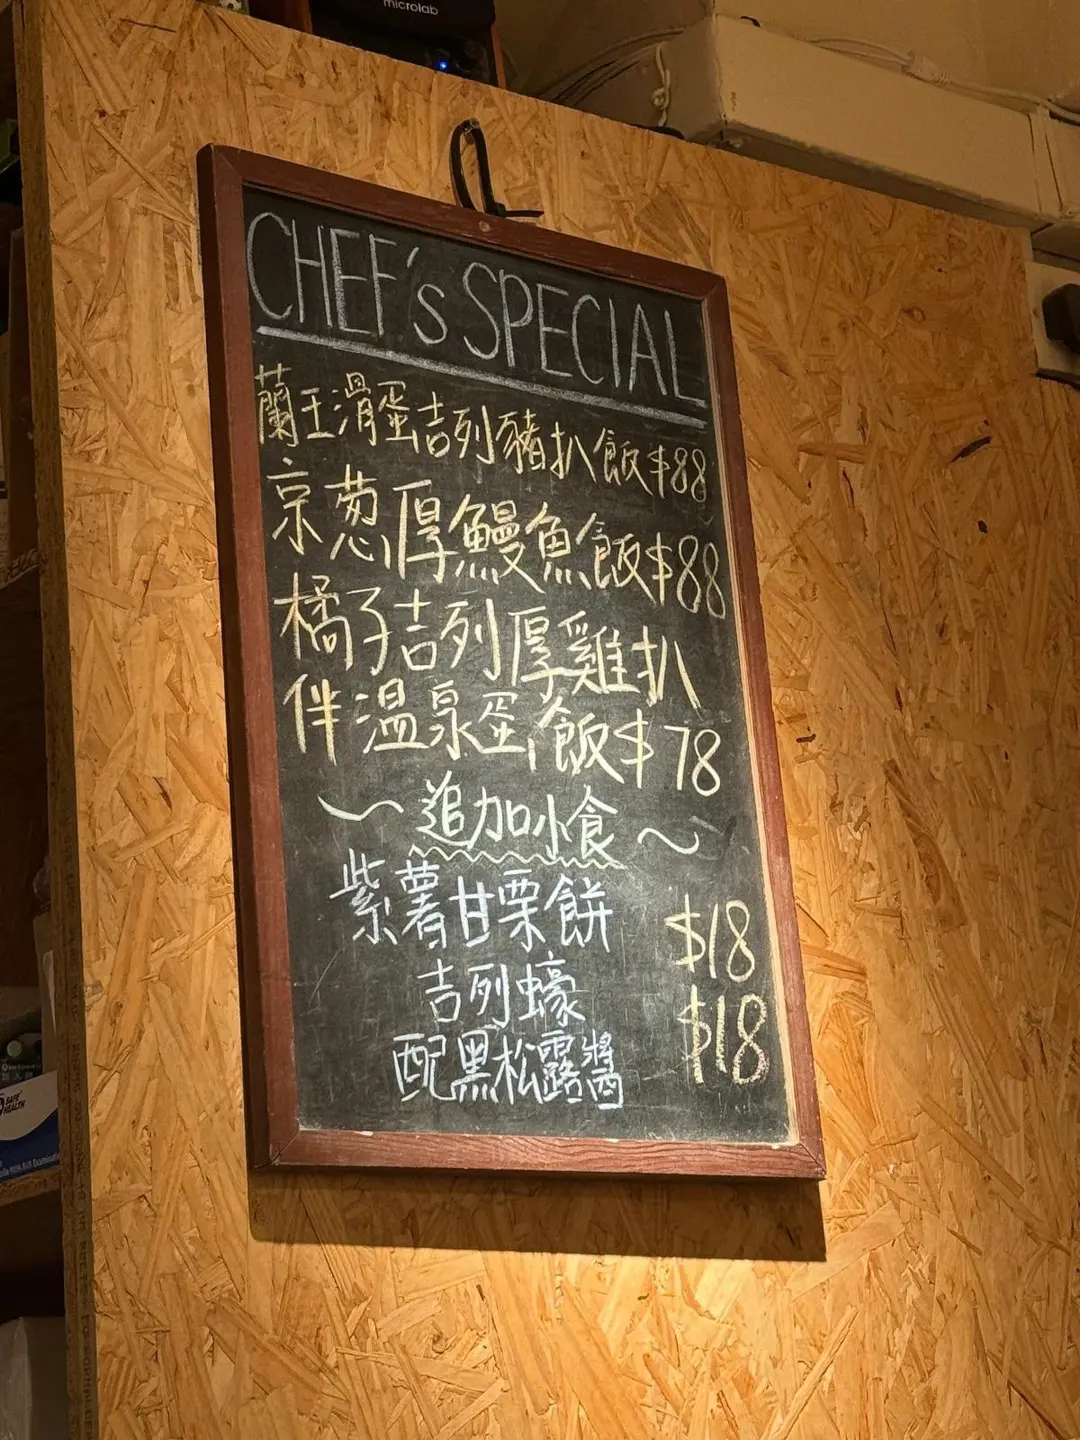 microlab
CHEF's SPECIAL
蘭王滑蛋吉列豬扒飯$88
京葱厚鰻魚飯$88
橘子吉列厚雞扒
伴溫泉蛋飯$78
～追加小食～
紫薯甘栗餅 $18
吉列蠔 $18
配黑松露醬
SAFE
HEALTH